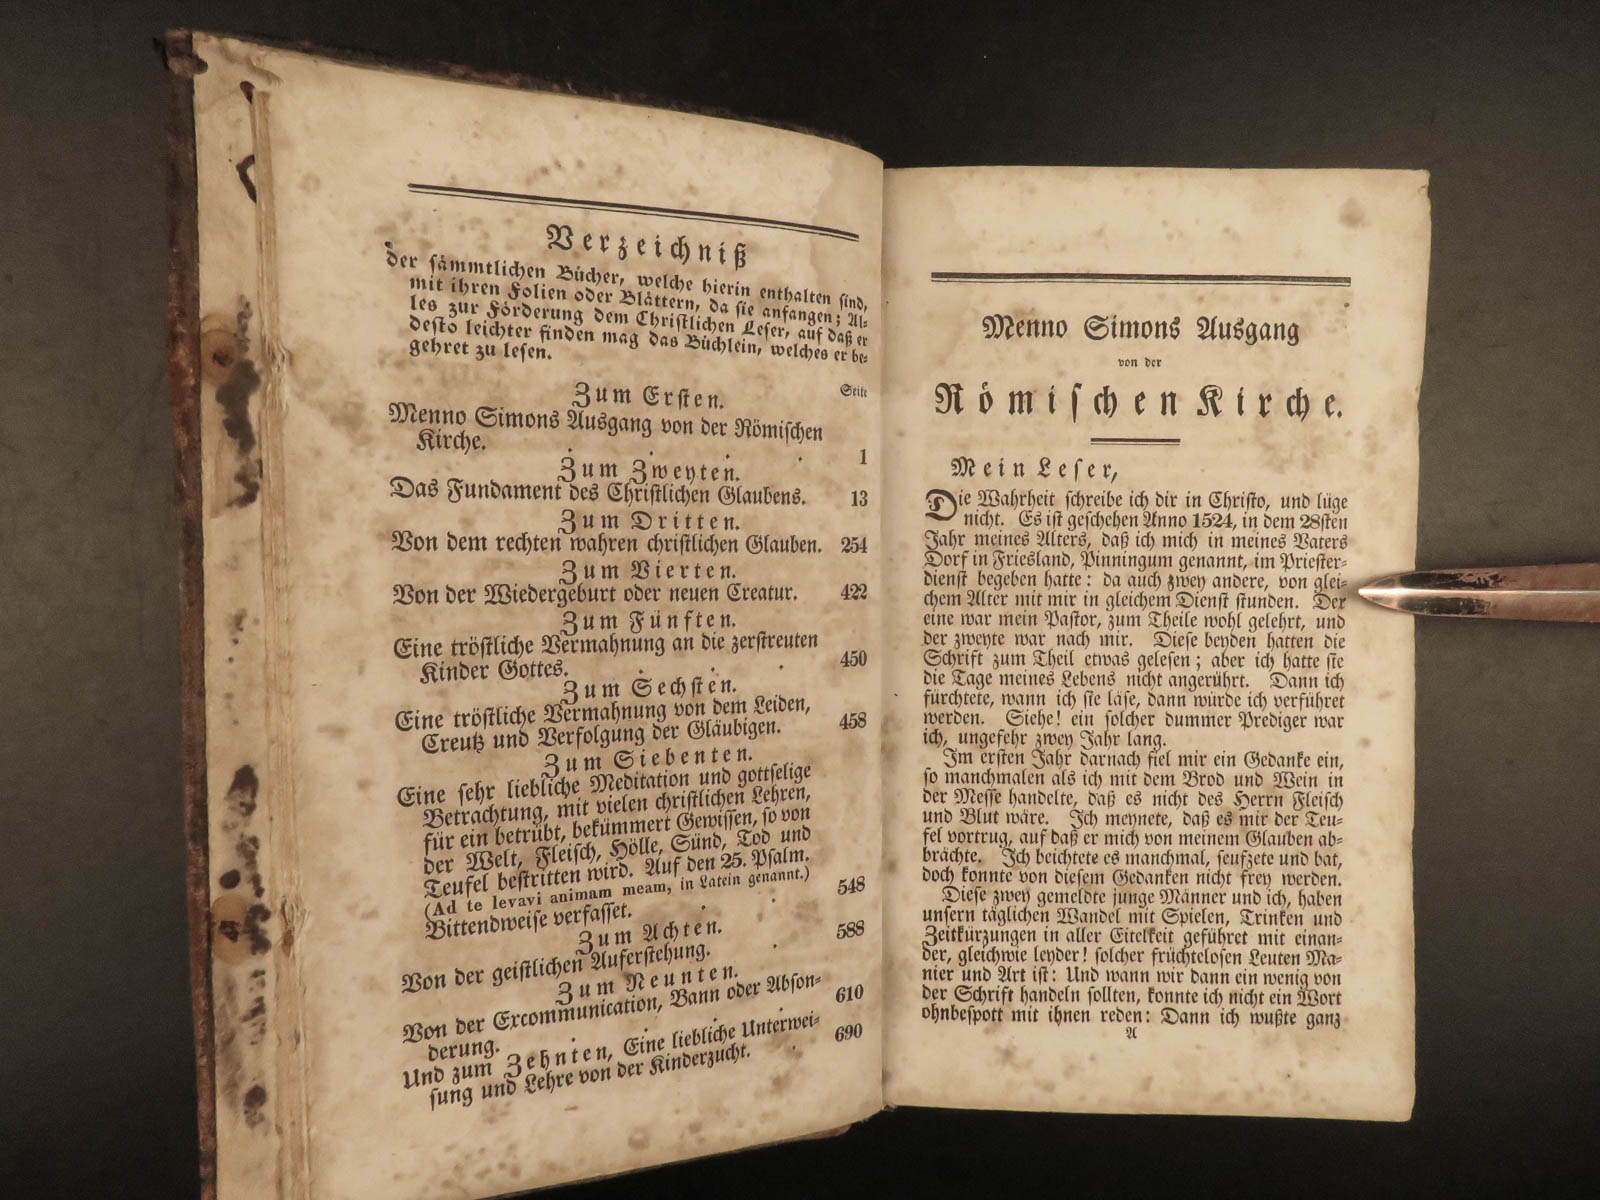 Verzeichniß
der sämmtlichen Bücher, welche hierin enthalten sind,
mit ihren Folien oder Blättern, da sie anfangen; Al-
les zur Förderung dem Christlichen Leser, auf daß er
desto leichter finden mag das Büchlein, welches er be-
gehret zu lesen.
Seite
Zum Ersten.
Menno Simons Ausgang von der Römischen
Kirche. 1
Zum Zweyten.
Das Fundament des Christlichen Glaubens. 13
Zum Dritten.
Von dem rechten wahren christlichen Glauben. 254
Zum Vierten.
Von der Wiedergeburt oder neuen Creatur. 422
Zum Fünften.
Eine tröstliche Vermahnung an die zerstreuten
Kinder Gottes. 450
Zum Sechsten.
Eine tröstliche Vermahnung von dem Leiden,
Creutz und Verfolgung der Gläubigen. 458
Zum Siebenten.
Eine sehr liebliche Meditation und gottselige
Betrachtung, mit vielen christlichen Lehren,
für ein betrübt, bekümmert Gewissen, so von
der Welt, Fleisch, Hölle, Sünd, Tod und
Teufel bestritten wird. Auf den 25. Psalm.
(Ad te levavi animam meam, in Latein genannt.)
Bittendweise verfasset. 548
Zum Achten.
Von der geistlichen Auferstehung. 588
Zum Neunten.
Von der Excommunication, Bann oder Abson-
derung. 610
Und zum Zehnten, Eine liebliche Unterwei-
sung und Lehre von der Kinderzucht. 690
Menno Simons Ausgang
von der
Römischen Kirche.
Mein Leser,
Die Wahrheit schreibe ich dir in Christo, und lüge
nicht. Es ist geschehen Anno 1524, in dem 28sten
Jahr meines Alters, daß ich mich in meines Vaters
Dorf in Friesland, Pinningum genannt, im Priester-
dienst begeben hatte: da auch zwey andere, von glei-
chem Alter mit mir in gleichem Dienst stunden. Der
eine war mein Pastor, zum Theile wohl gelehrt, und
der zweyte war nach mir. Diese beyden hatten die
Schrift zum Theil etwas gelesen; aber ich hatte sie
die Tage meines Lebens nicht angerührt. Dann ich
fürchtete, wann ich sie läse, dann würde ich verführet
werden. Siehe! ein solcher dummer Prediger war
ich, ungefehr zwey Jahr lang.
Im ersten Jahr darnach fiel mir ein Gedanke ein,
so manchmalen als ich mit dem Brod und Wein in
der Messe handelte, daß es nicht des Herrn Fleisch
und Blut wäre. Ich meynete, daß es mir der Teu-
fel vortrug, auf daß er mich von meinem Glauben ab-
brächte. Ich beichtete es manchmal, seufzete und bat,
doch konnte von diesem Gedanken nicht frey werden.
Diese zwey gemeldte junge Männer und ich, haben
unsern täglichen Wandel mit Spielen, Trinken und
Zeitkürzungen in aller Eitelkeit geführet mit einan-
der, gleichwie leyder! solcher früchtelosen Leuten Ma-
nier und Art ist: Und wann wir dann ein wenig von
der Schrift handeln sollten, konnte ich nicht ein Wort
ohnbespott mit ihnen reden: Dann ich wußte ganz
A